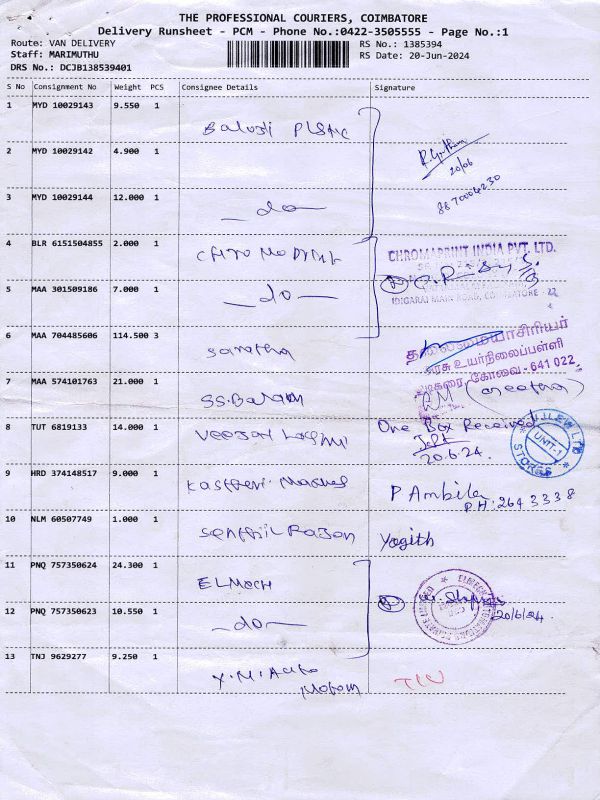 THE PROFESSIONAL COURIERS, COIMBATORE
Delivery Runsheet - PCM - Phone No.:0422-3505555 - Page No.:1
Route: VAN DELIVERY RS No.: 1385394
Staff: MARIMUTHU RS Date: 20-Jun-2024
DRS No.: DCJB138539401
S No Consignment No Weight PCS Consignee Details Signature
1 MYD 10029143 9.550 1
2 MYD 10029142 4.900 1
20/06
3 MYD 10029144 12.000 1 do
8870004230
4 BLR 6151504855 2.000 1
CHROMAPRINT INDIA PVT. LTD.
5 MAA 301509186 7.000 1 do
IDIGARAI MAIN ROAD, COIMBATORE - 22
6 MAA 704485606 114.500 3
தலைமையாசிரியர்
அரசு உயர்நிலைப்பள்ளி
கோவை - 641 022
7 MAA 574101763 21.000 1 SS.Balam
8 TUT 6819133 14.000 1
One Box Received
20.6.24
UNIT-1
STORES
9 HRD 374148517 9.000 1
P Ambika
PH: 264 3338
10 NLM 60507749 1.000 1 Senthil Rajan Yogith
11 PNQ 757350624 24.300 1 ELMECH
12 PNQ 757350623 10.550 1 do
20/6/24
13 TNJ 9629277 9.250 1 Y.M.Auto
Motors